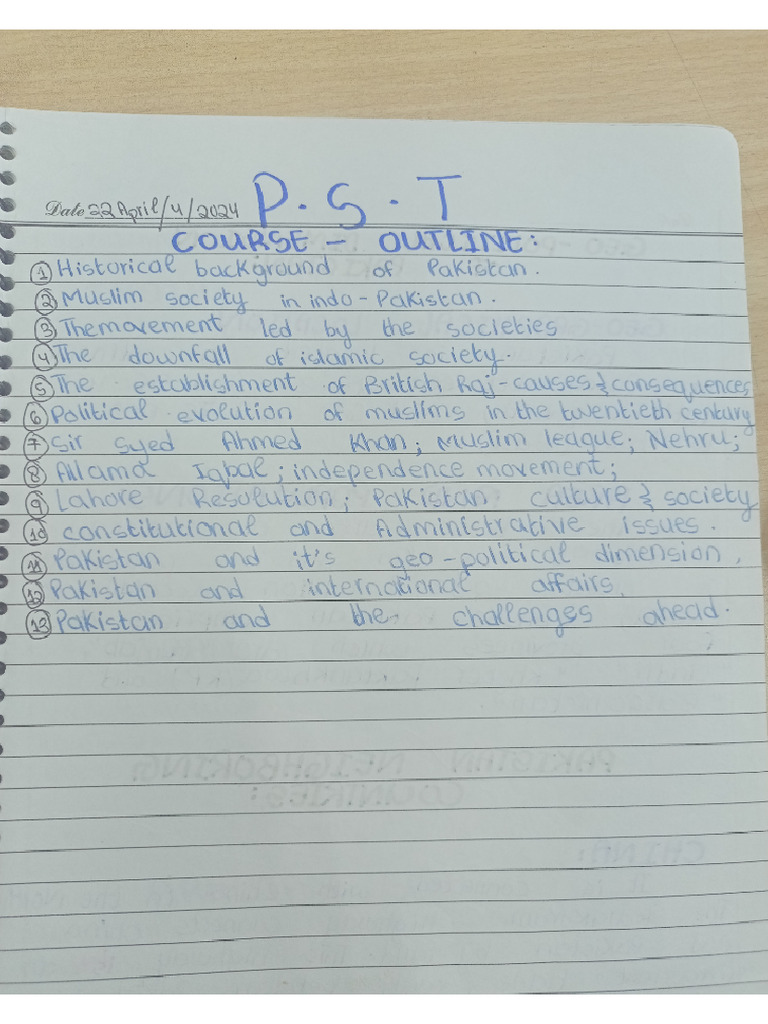 Date 22 April/4/2024 P.S.T
COURSE - OUTLINE:
① Historical background of Pakistan.
② Muslim society in indo-Pakistan.
③ The movement led by the societies
④ The downfall of islamic society.
⑤ The establishment of British Raj-causes & consequences
⑥ Political evolution of muslims in the twentieth century
⑦ Sir Syed Ahmed Khan; Muslim league; Nehru;
⑧ Allama Iqbal; independence movement;
⑨ Lahore Resolution; Pakistan culture & society
⑩ constitutional and Administrative issues.
⑪ Pakistan and it's geo-political dimension,
⑫ Pakistan and international affairs,
⑬ Pakistan and the challenges ahead.